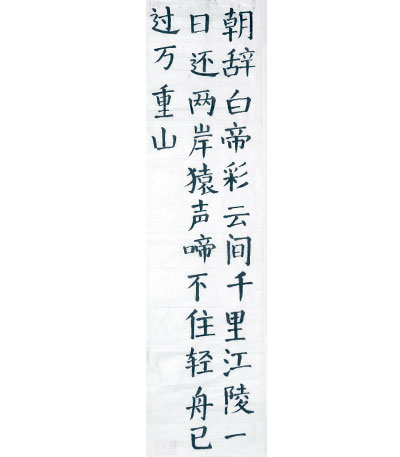 朝辞白帝彩云间千里江陵一
日还两岸猿声啼不住轻舟已
过万重山